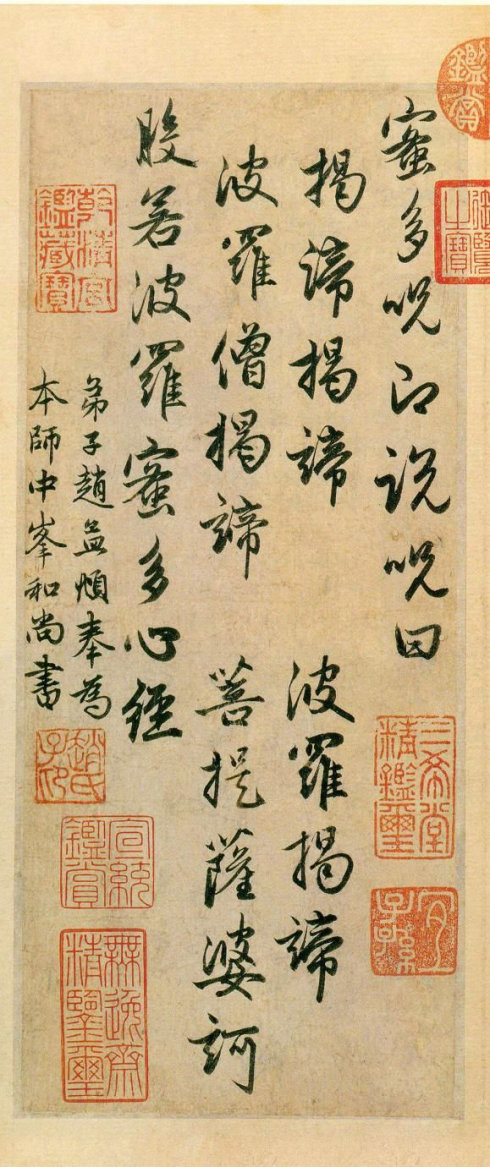 蜜多呪即説呪曰
揭諦揭諦 波羅揭諦
波羅僧揭諦 菩提薩婆訶
般若波羅蜜多心經
弟子趙孟頫奉為
本師中峯和尚書
鑑賞
三希堂
精鑑璽
宜
子孫
乾清宮
鑑藏寶
趙氏
子昂
宣統
鑑賞
無逸齋
精鑒璽